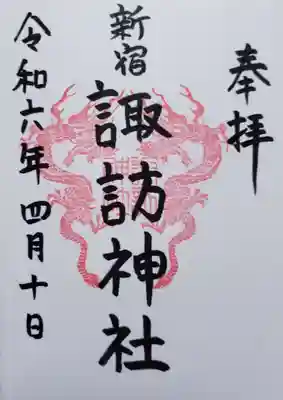 奉拝
新宿
諏訪神社
令和六年四月十日